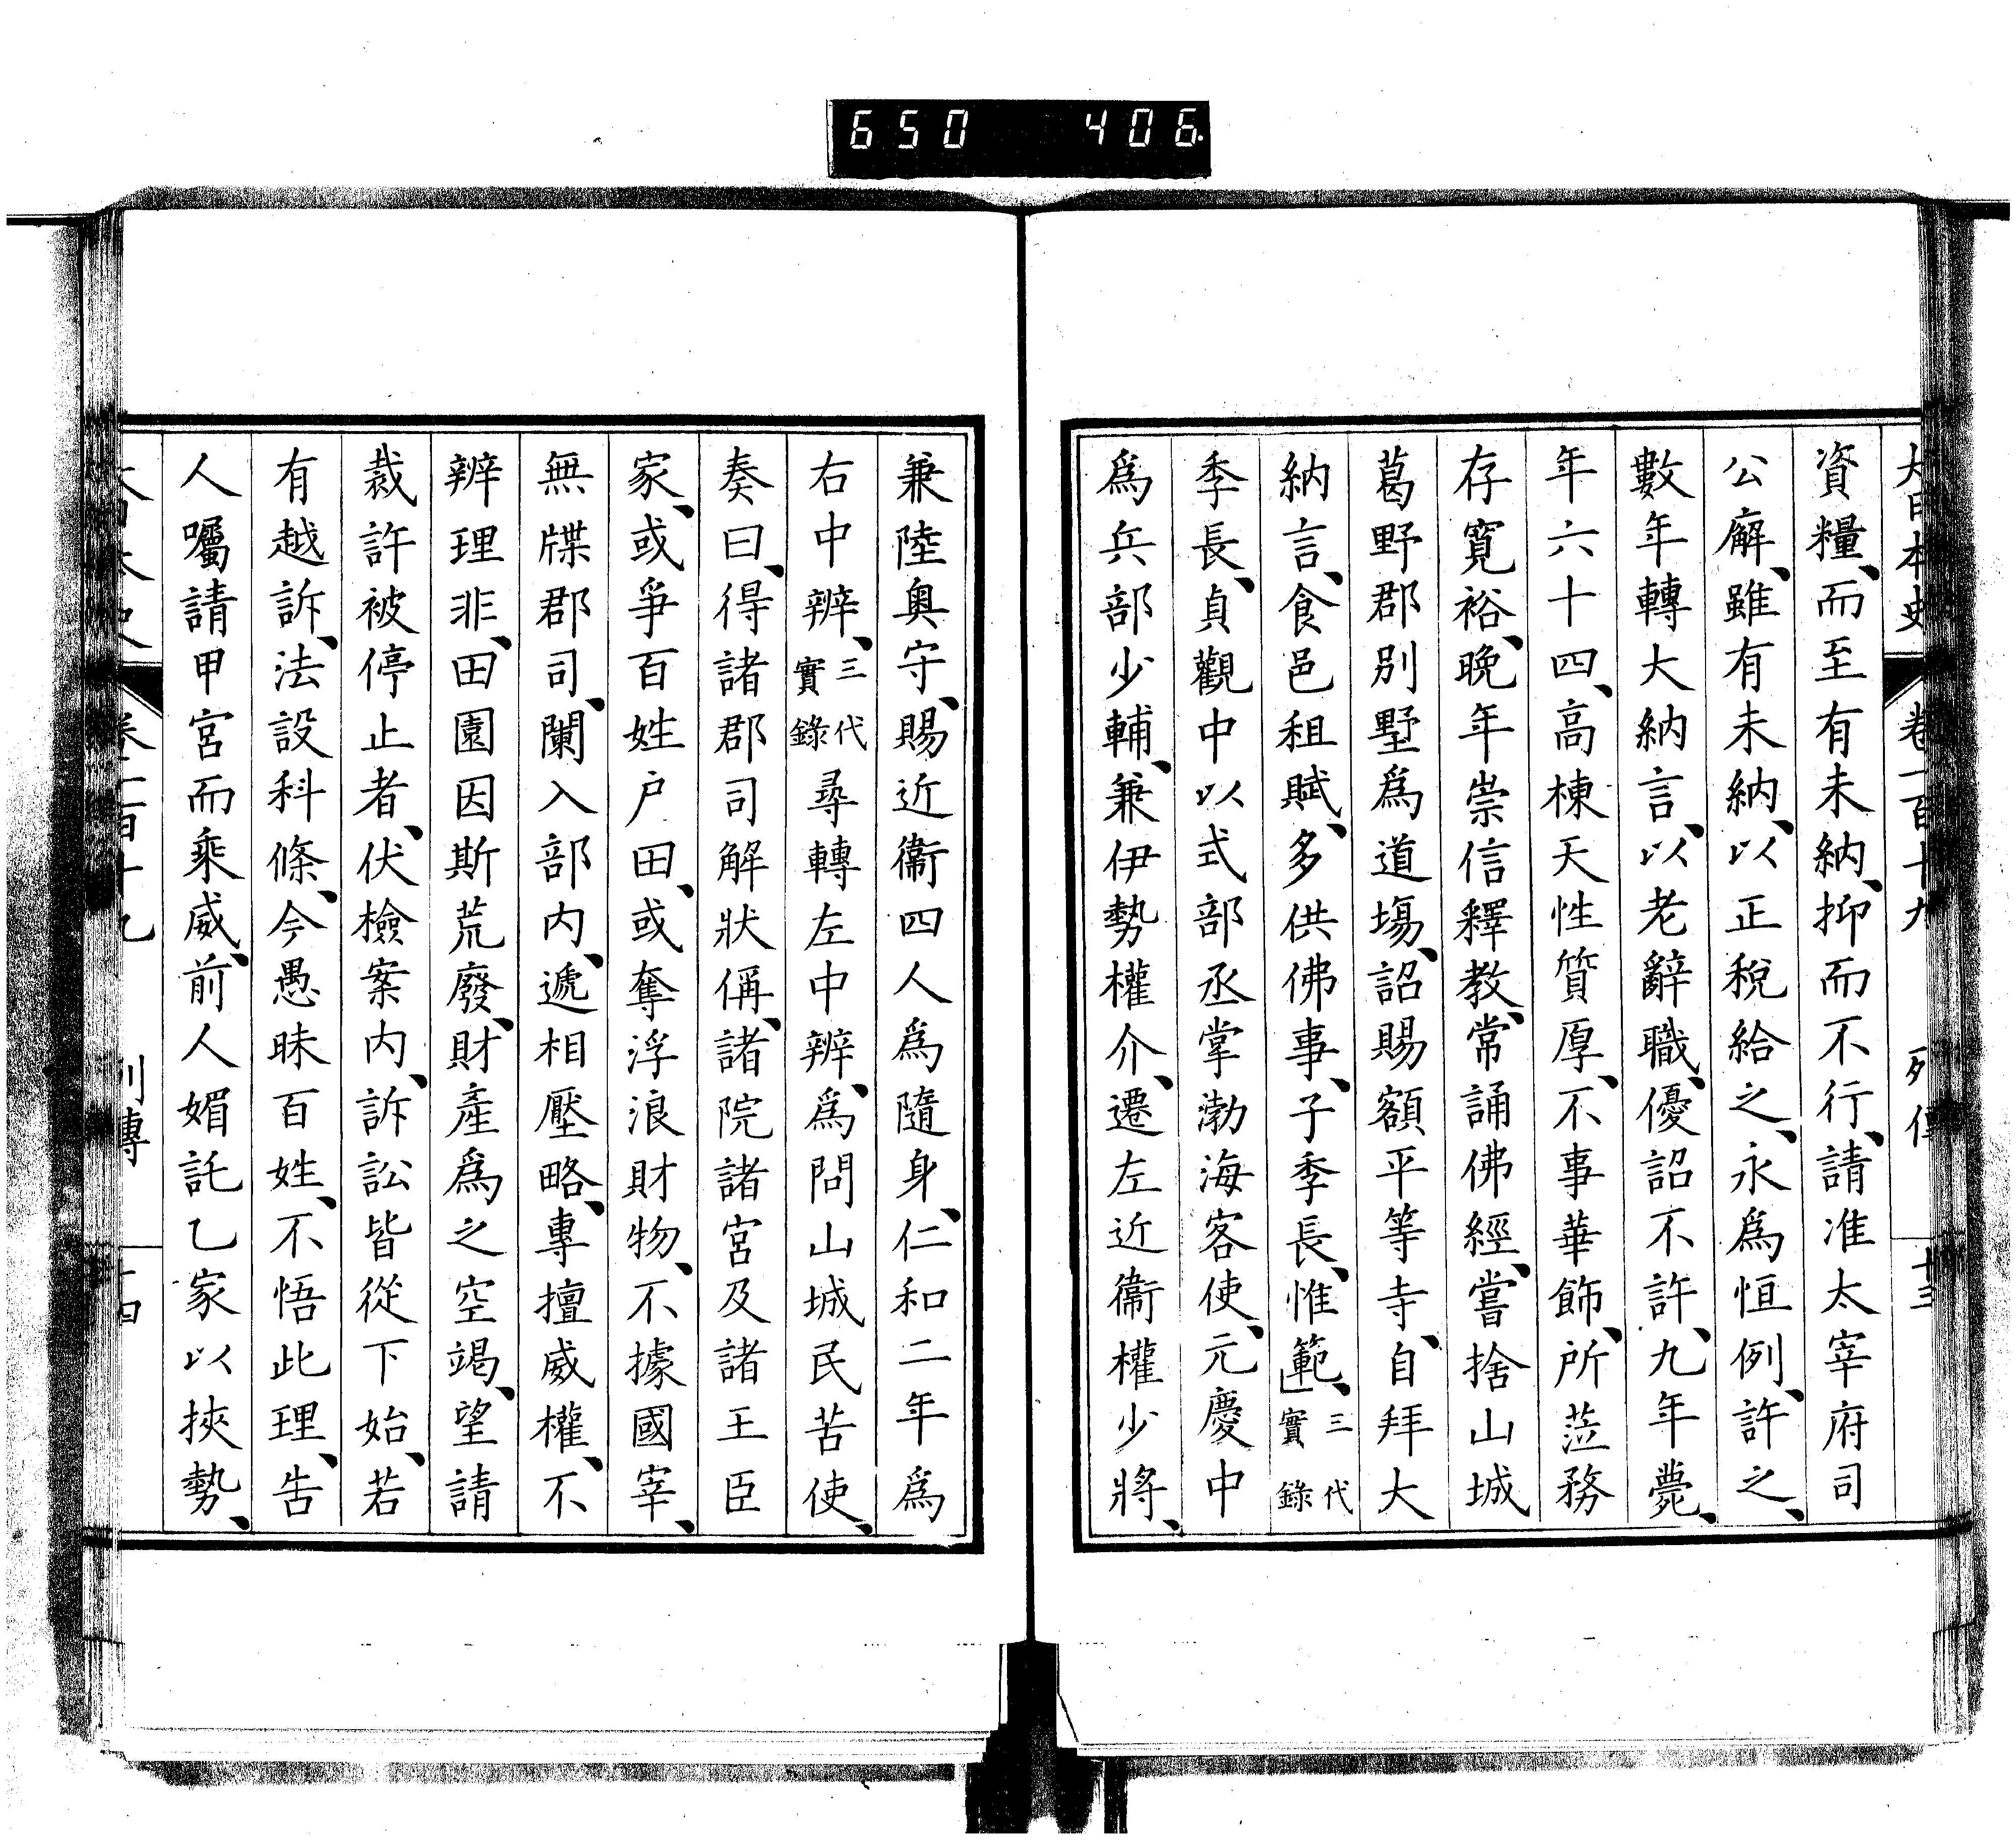 650 406
大日本史 卷一百十九 列傳 十三
資糧、而至有未納、抑而不行、請准太宰府司
公廨、雖有未納、以正稅給之、永爲恒例、許之、
數年轉大納言、以老辭職、優詔不許、九年薨、
年六十四、高棟天性質厚、不事華飾、所莅務
存寬裕、晚年崇信釋教、常誦佛經、嘗捨山城
葛野郡別墅爲道場、詔賜額平等寺、自拜大
納言、食邑租賦、多供佛事、子季長、惟範、三代實錄
季長、貞觀中以式部丞掌渤海客使、元慶中
爲兵部少輔、兼伊勢權介、遷左近衞權少將、
兼陸奧守、賜近衞四人爲隨身、仁和二年爲
右中辨、三代實錄尋轉左中辨、爲問山城民苦使、
奏曰、得諸郡司解狀偁、諸院諸宮及諸王臣
家、或爭百姓户田、或奪浮浪財物、不據國宰、
無牒郡司、闌入部內、遞相壓略、專擅威權、不
辨理非、田園因斯荒廢、財產爲之空竭、望請
裁許被停止者、伏檢案內、訴訟皆從下始、若
有越訴、法設科條、今愚昧百姓、不悟此理、告
人囑請甲宮而乘威、前人媚託乙家以挾勢、
大日本史 卷一百十九 列傳 十四